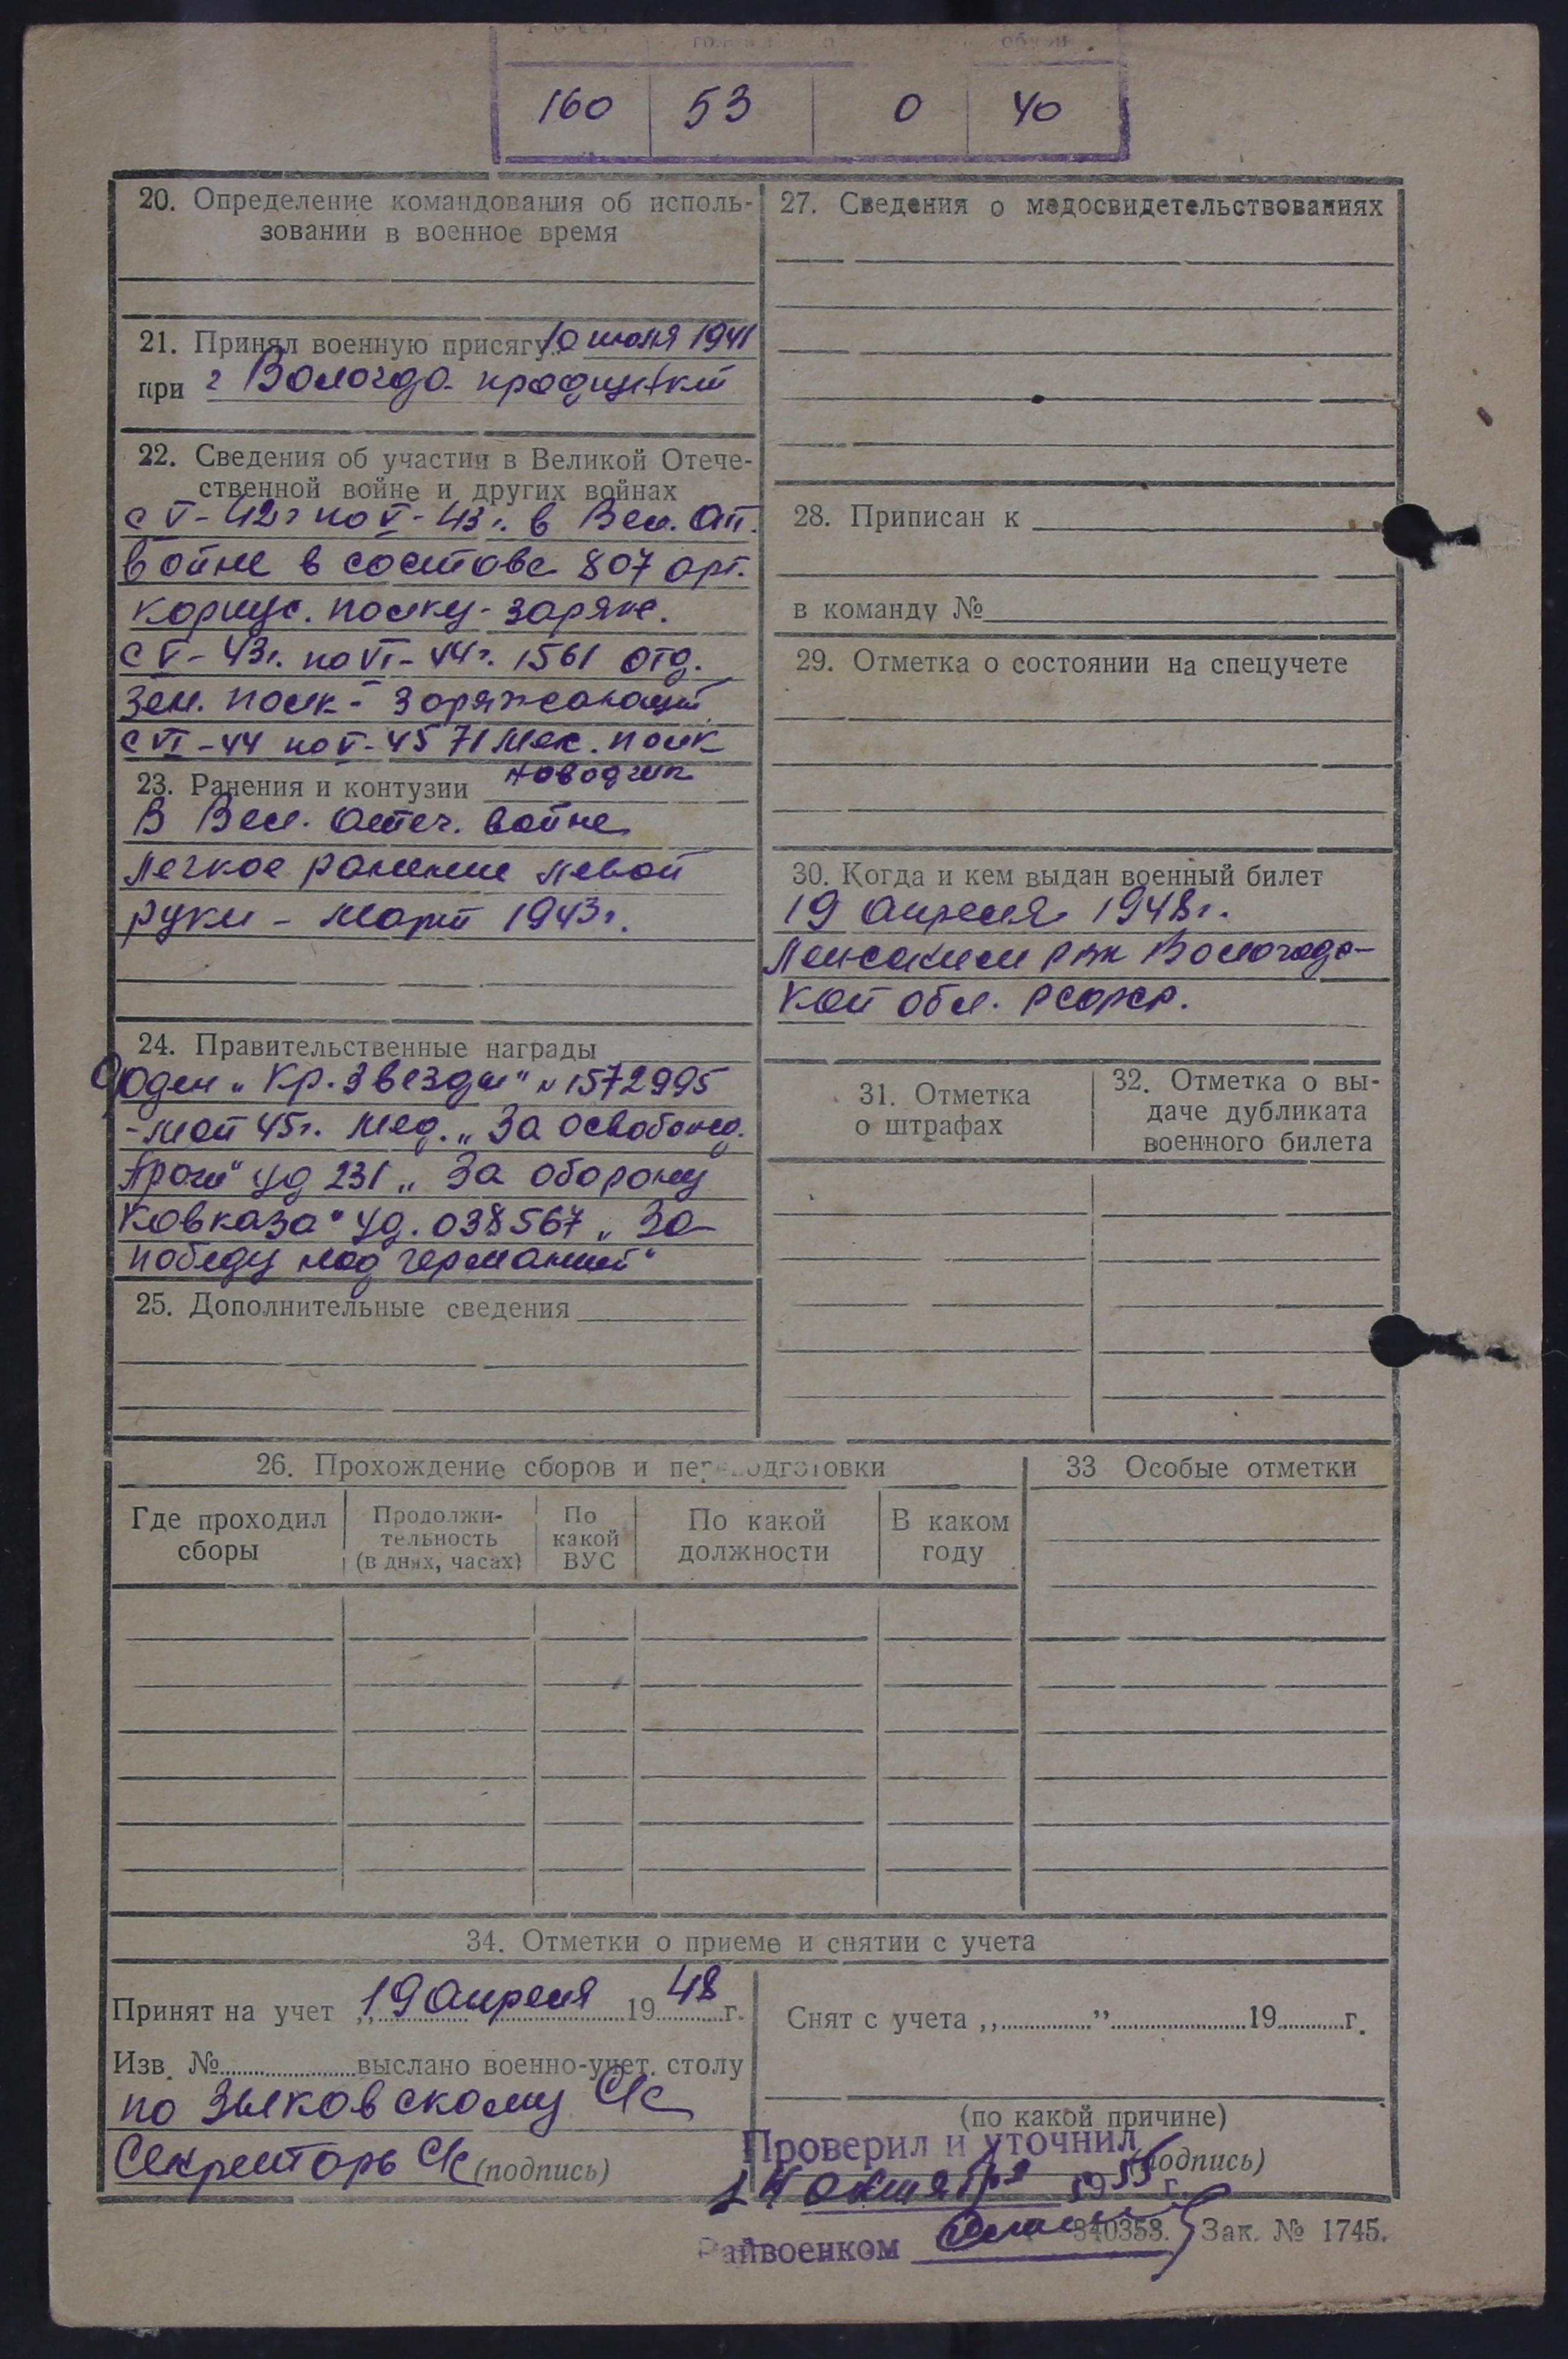 160 53 0 40
20. Определение командования об исполь-
зовании в военное время
21. Принял военную присягу 10 июля 1941
при г Вологда продпункт
22. Сведения об участии в Великой Отече-
ственной войне и других войнах
с V-42г по V-43г. в Вел. От.
войне в составе 807 арт.
корпус. полку - заряж.
с V-43г. по VI-44г. 1561 отд.
зен. полк - заряжающий
с VI-44 по V-45 71 мех. полк
наводчик
23. Ранения и контузии
В Вел. Отеч. войне
легкое ранение левой
руки - март 1943г.
24. Правительственные награды
Оден „Кр. Звезды" № 1572995
- май 45г. Мед. „За освобожд.
Праги" уд 231 „За оборону
Кавказа" уд. 038567 „За
победу над германией"
25. Дополнительные сведения
26. Прохождение сборов и переподготовки
Где проходил
сборы
Продолжи-
тельность
(в днях, часах)
По
какой
ВУС
По какой
должности
В каком
году
27. Сведения о медосвидетельствованиях
28. Приписан к
в команду №
29. Отметка о состоянии на спецучете
30. Когда и кем выдан военный билет
19 апреля 1948г.
РВК Вологодс-
кой обл. РСФСР.
31. Отметка
о штрафах
32. Отметка о вы-
даче дубликата
военного билета
33 Особые отметки
34. Отметки о приеме и снятии с учета
Принят на учет „19 апреля 1948 г.
Изв. № выслано военно-учет. столу
по Зыковскому С/с
Секретарь С/с (подпись)
Снят с учета „ ” 19 г.
(по какой причине)
(подпись)
Проверил и уточнил
14 октября 1955 г.
Райвоенком
340353. Зак. № 1745.